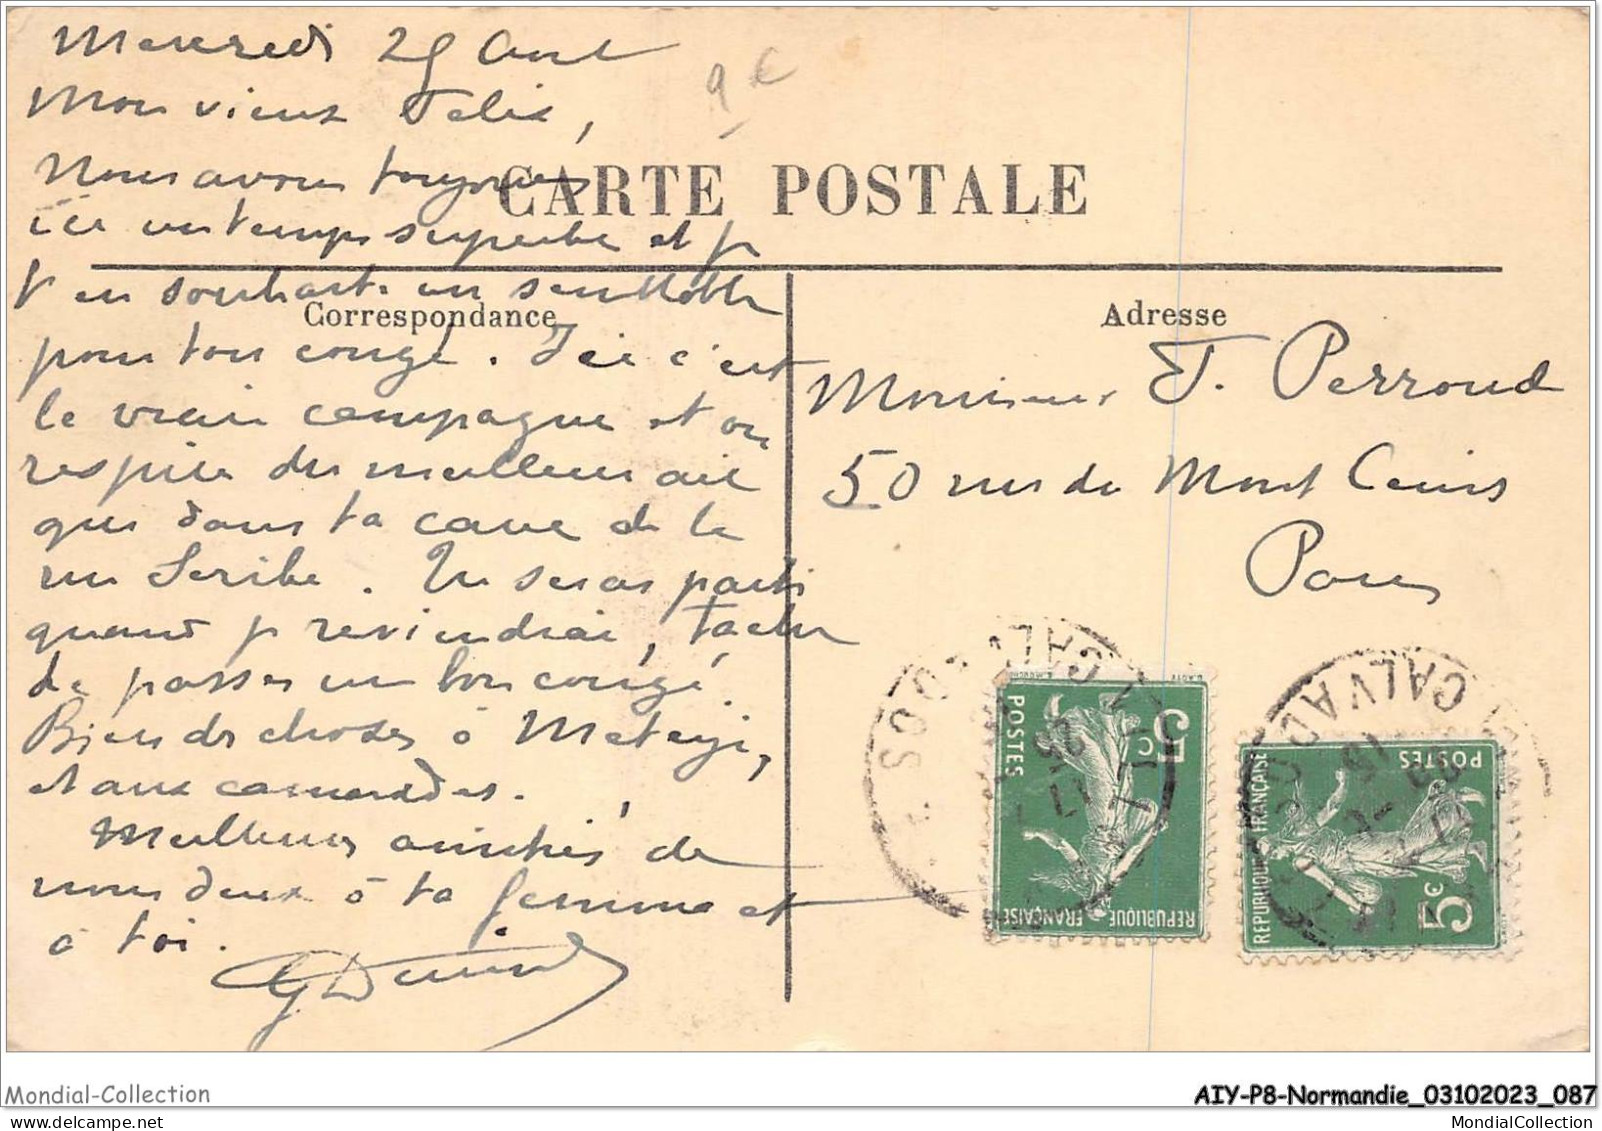 Mercredi 25 Aout
9 €
Mon vieux Felix,
Nous avons toujours
CARTE POSTALE
ici un temps superbe et je
t'en souhaite un semblable
Correspondance
pour ton congé. Ici c'est
la vraie campagne et on
respire du meilleur air
que dans ta cave de la
rue Scribe. Tu seras parti
quand je reviendrai, tache
de passer un bon congé.
Bien des choses à
et aux camarades.
Meilleures amitiés de
nous deux à ta femme et
à toi.
Adresse
Monsieur F. Perroud
50 rue du Mont Cenis
Paris
CALVADOS
POSTES
5c
REPUBLIQUE FRANÇAISE
CALVADOS
POSTES
5c
REPUBLIQUE FRANÇAISE
Mondial-Collection
AIY-P8-Normandie_03102023_087
MondialCollection